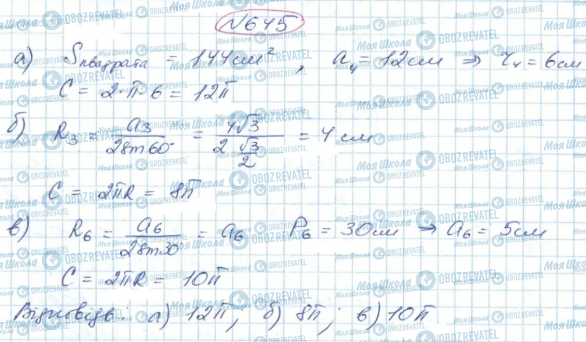 №645
а) Sквадрата = 144 см², a₄ = 12 см ⇒ r₄ = 6 см
C = 2·π·6 = 12π
б) R₃ = a₃ / 2sin60° = 4√3 / 2 √3/2 = 4 см
C = 2πR = 8π
в) R₆ = a₆ / 2sin30 = a₆ P₆ = 30 см → a₆ = 5 см
C = 2πR = 10π
Відповідь: а) 12π; б) 8π; в) 10π